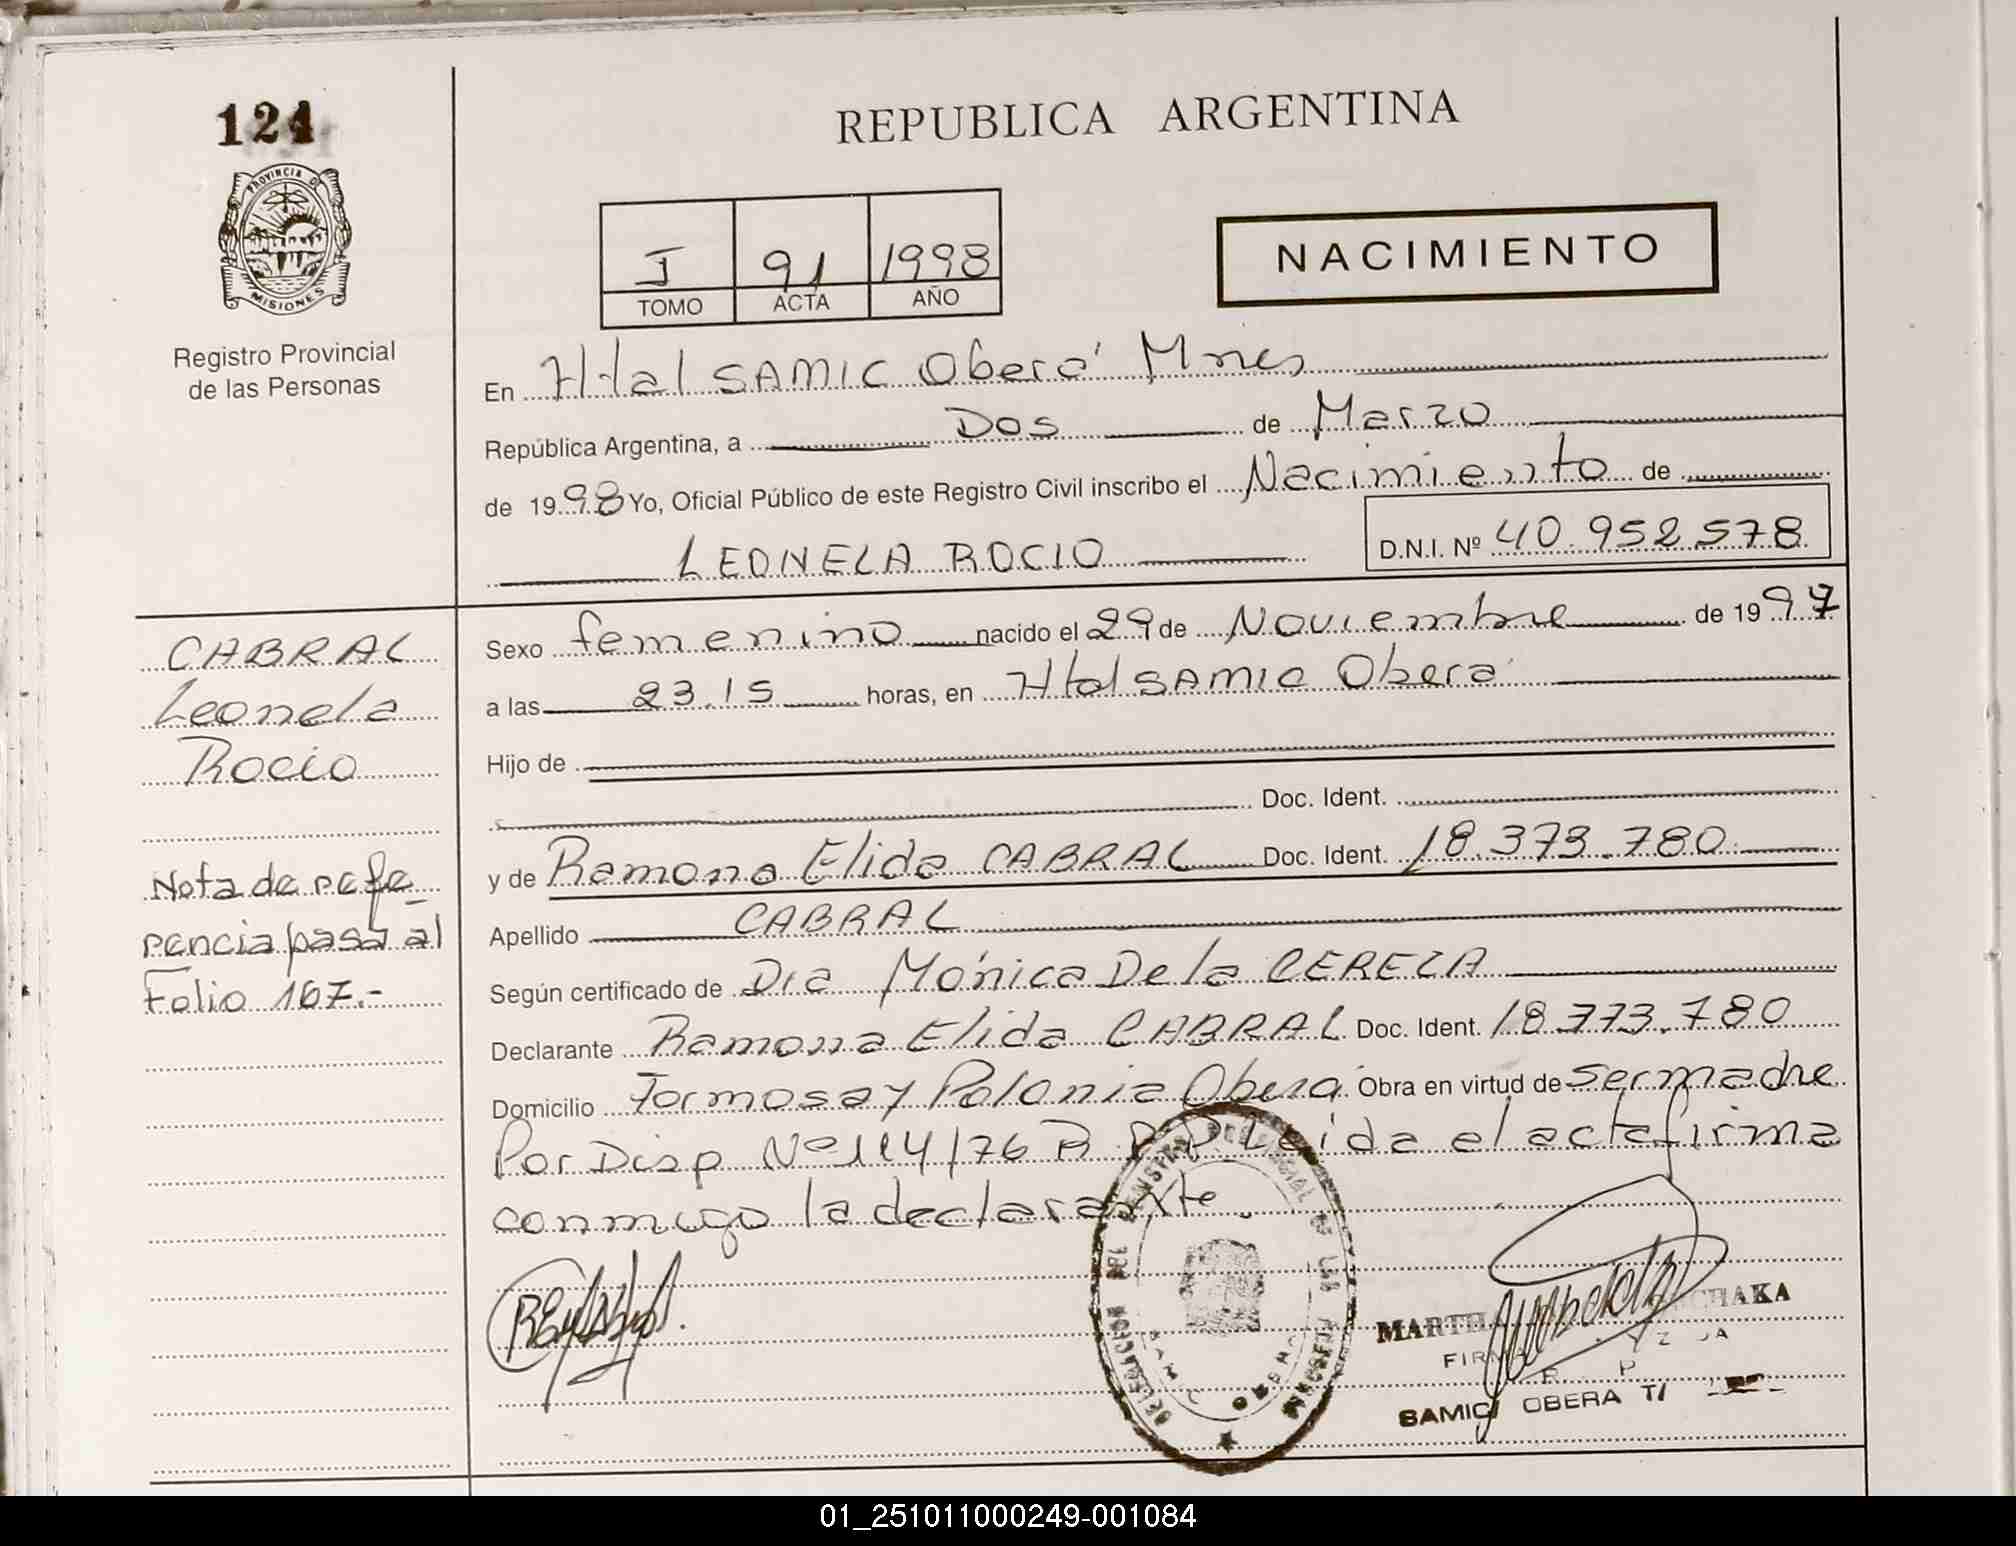 124
PROVINCIA D
MISIONES
Registro Provincial
de las Personas
REPUBLICA ARGENTINA
I 91 1998
TOMO ACTA AÑO
NACIMIENTO
En Htal SAMIC Oberá Mnes
República Argentina, a Dos de Marzo
de 1998 Yo, Oficial Público de este Registro Civil inscribo el Nacimiento de
LEONELA ROCIO D.N.I. Nº 40.952.578
CABRAL
Leonela
Rocio
Nota de refe
rencia pasa al
Folio 167.-
Sexo femenino nacido el 29 de Noviembre de 1997
a las 23.15 horas, en Htal SAMIC Oberá
Hijo de
Doc. Ident.
y de Ramona Elida CABRAL Doc. Ident. 18.373.780
Apellido CABRAL
Según certificado de Dra Mónica De la CEREZA
Declarante Ramona Elida CABRAL Doc. Ident. 18.373.780
Domicilio Formosa y Polonia Oberá Obra en virtud de ser madre
Por Disp Nº 114/76 R.P.P. Leida el acta firma
conmigo la declarante.
DELEGACION DEL REGISTRO PROVINCIAL DE LAS PERSONAS
MARTHA
FIRMA
R. P.
SAMIC OBERA
01_251011000249-001084